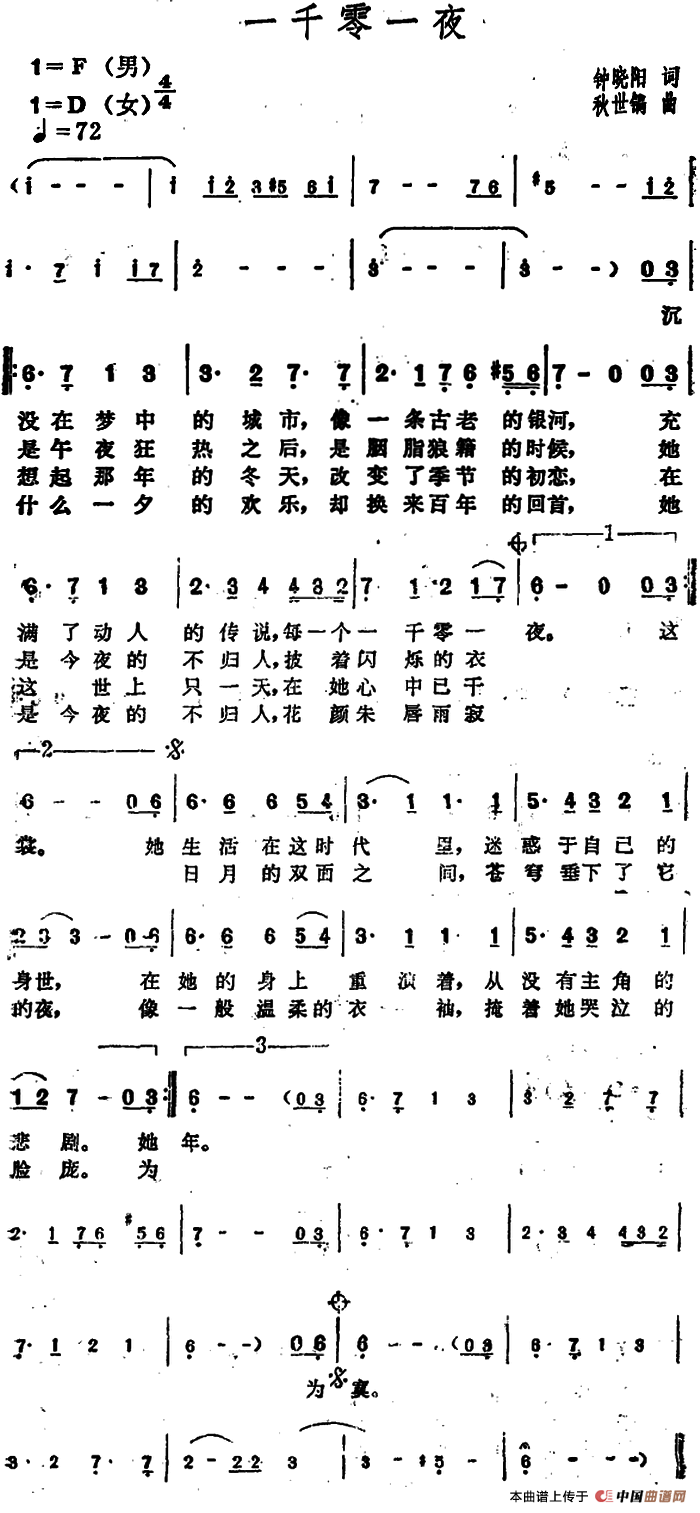 一千零一夜
1=F（男）4/4
1=D（女）
♩=72
钟晓阳 词
秋世锅 曲
(i - - - | i i2 3#5 6i | 7 - - 76 | #5 - - i2 |
i· 7 i i7 | 2 - - - | 3 - - - | 3 - - ) 03 |
沉
6· 7 1 3 | 3· 2 7· 7 | 2· 1 7 6 #5 6 | 7 - 0 03 |
没在梦中的城市，像一条古老的银河，充
是午夜狂热之后，是胭脂狼籍的时候，她
想起那年的冬天，改变了季节的初恋，在
什么一夕的欢乐，却换来百年的回首，她
1
6· 7 1 3 | 2· 3 4 432 | 7 1· 2 17 | 6 - 0 03
满了动人的传说，每一个一千零一夜。这
是今夜的不归人，披着闪烁的衣
这世上只一天，在她心中已千
是今夜的不归人，花颜朱唇雨寂
2
6 - - 06 | 6· 6 6 654 | 3· 1 1· 1 | 5· 43 2 1 |
裳。她生活在这时代里，迷惑于自己的
日月的双面之间，苍穹垂下了它
23 3 - 06 | 6· 6 6 54 | 3· 1 1 1 | 5· 43 2 1
身世，在她的身上重演着，从没有主角的
的夜，像一般温柔的衣袖，掩着她哭泣的
3
12 7 - 03 | 6 - - (03 | 6· 7 1 3 | 3 2 7· 7 |
悲剧。她年。
脸庞。为
2· 1 76 #56 | 7 - - 03 | 6· 7 1 3 | 2· 34 432 |
7· 1 2 1 | 6 - - ) 06 | 6 - - (03 | 6· 7 1 3 |
为寞。
3· 2 7· 7 | 2 - 22 3 | 3 - #5 - | 6 - - )
本曲谱上传于 中国曲谱网